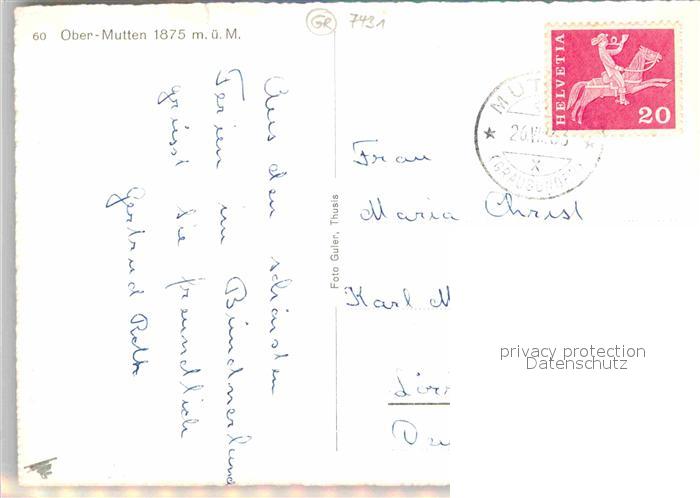 GR 7431
60 Ober-Mutten 1875 m. ü. M.
Aus den schönsten
Ferien im Bündnerland
grüsst Sie freundlich
Gertrud Roth
Foto Guler, Thusis
HELVETIA
20
MUT
26.VII.
X
(GRAUBÜNDEN)
Frau
Maria Christ
Karl M
privacy protection
Datenschutz